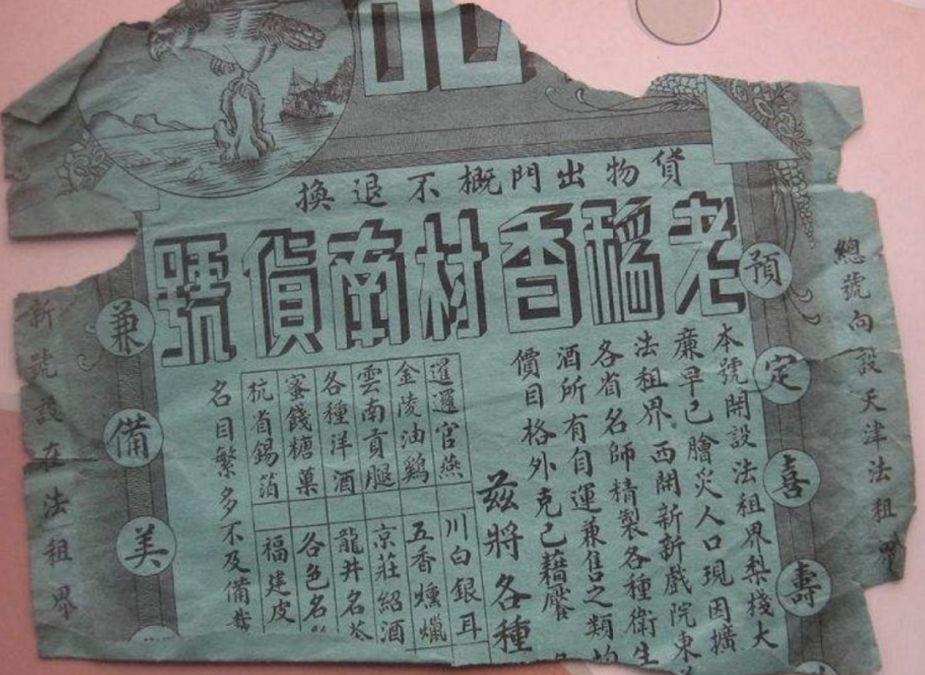 貨物出門概不退換
老稻香村南貨號
總號向設天津法租界
預定喜壽
本號開設法租界梨棧大
廉早已膾炙人口現因擴
法租界西開新新戲院東
各省名師精製各種衛生
酒所有自運兼售之類均
價目格外克己藉饜
茲將各種
暹邏官燕
川白銀耳
金陵油鷄
五香燻臘
雲南貢腿
京莊紹酒
各種洋酒
龍井名茶
蜜餞糖菓
各色名
杭省錫箔
福建皮
名目繁多不及備哉
兼備美
新號設在法租界